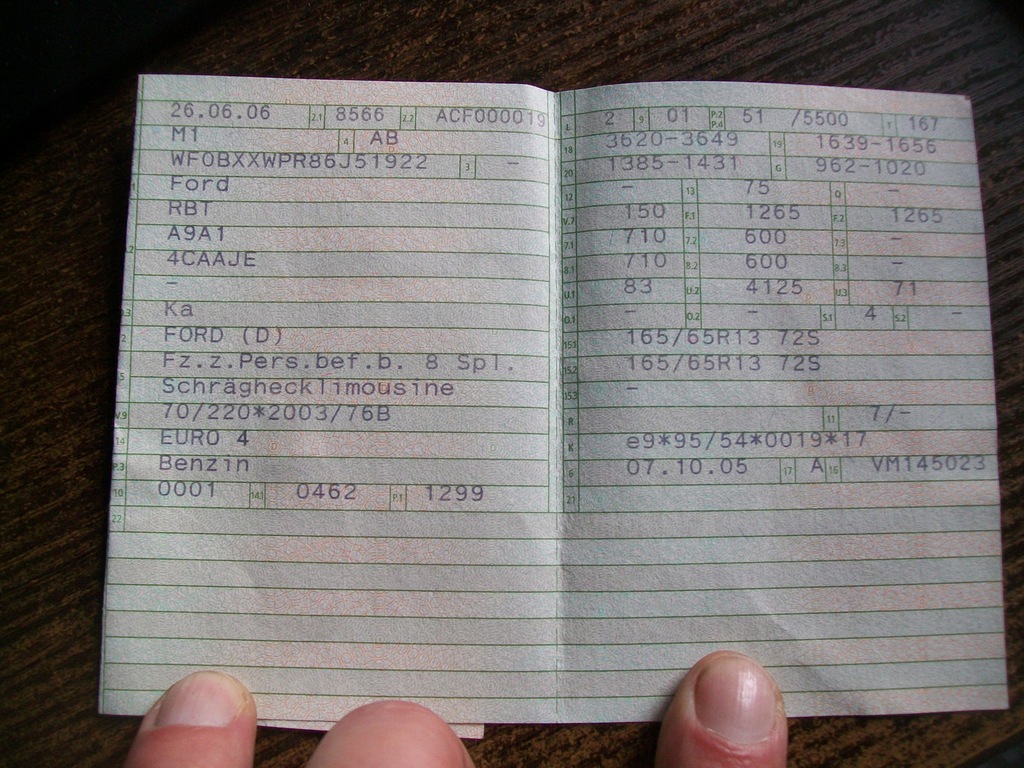 26.06.06 2.1 8566 2.2 ACF000019
M1 4 AB
WF0BXXWPR86J51922 3 -
Ford
RBT
A9A1
4CAAJE
-
Ka
FORD (D)
Fz.z.Pers.bef.b. 8 Spl.
5 Schräghecklimousine
V.9 70/220*2003/76B
14 EURO 4
P.3 Benzin
10 0001 14.1 0462 P.1 1299
22
L 2 9 01 P.2 P.4 51 /5500 T 167
18 3620-3649 19 1639-1656
20 1385-1431 G 962-1020
12 - 13 75 Q -
V.7 150 F.1 1265 F.2 1265
7.1 710 7.2 600 7.3 -
8.1 710 8.2 600 8.3 -
U.1 83 U.2 4125 U.3 71
O.1 - O.2 - S.1 4 S.2 -
15.1 165/65R13 72S
15.2 165/65R13 72S
15.3 -
R 11 7/-
K e9*95/54*0019*17
6 07.10.05 17 A 16 VM145023
21